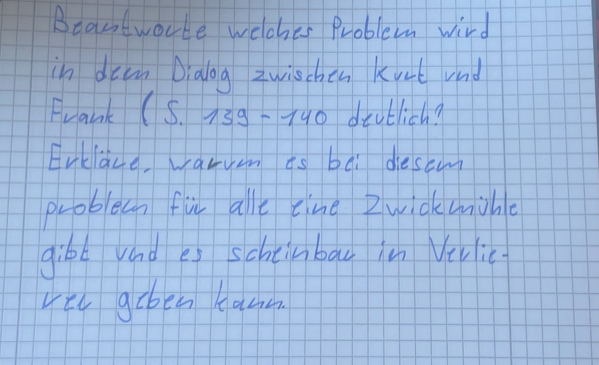 Beantworte welches Problem wird
in dem Dialog zwischen Kurt und
Frank (S. 139-140 deutlich?
Erkläre, warum es bei diesem
problem für alle eine Zwickmühle
gibt und es scheinbar in Verlie-
rer geben kann.